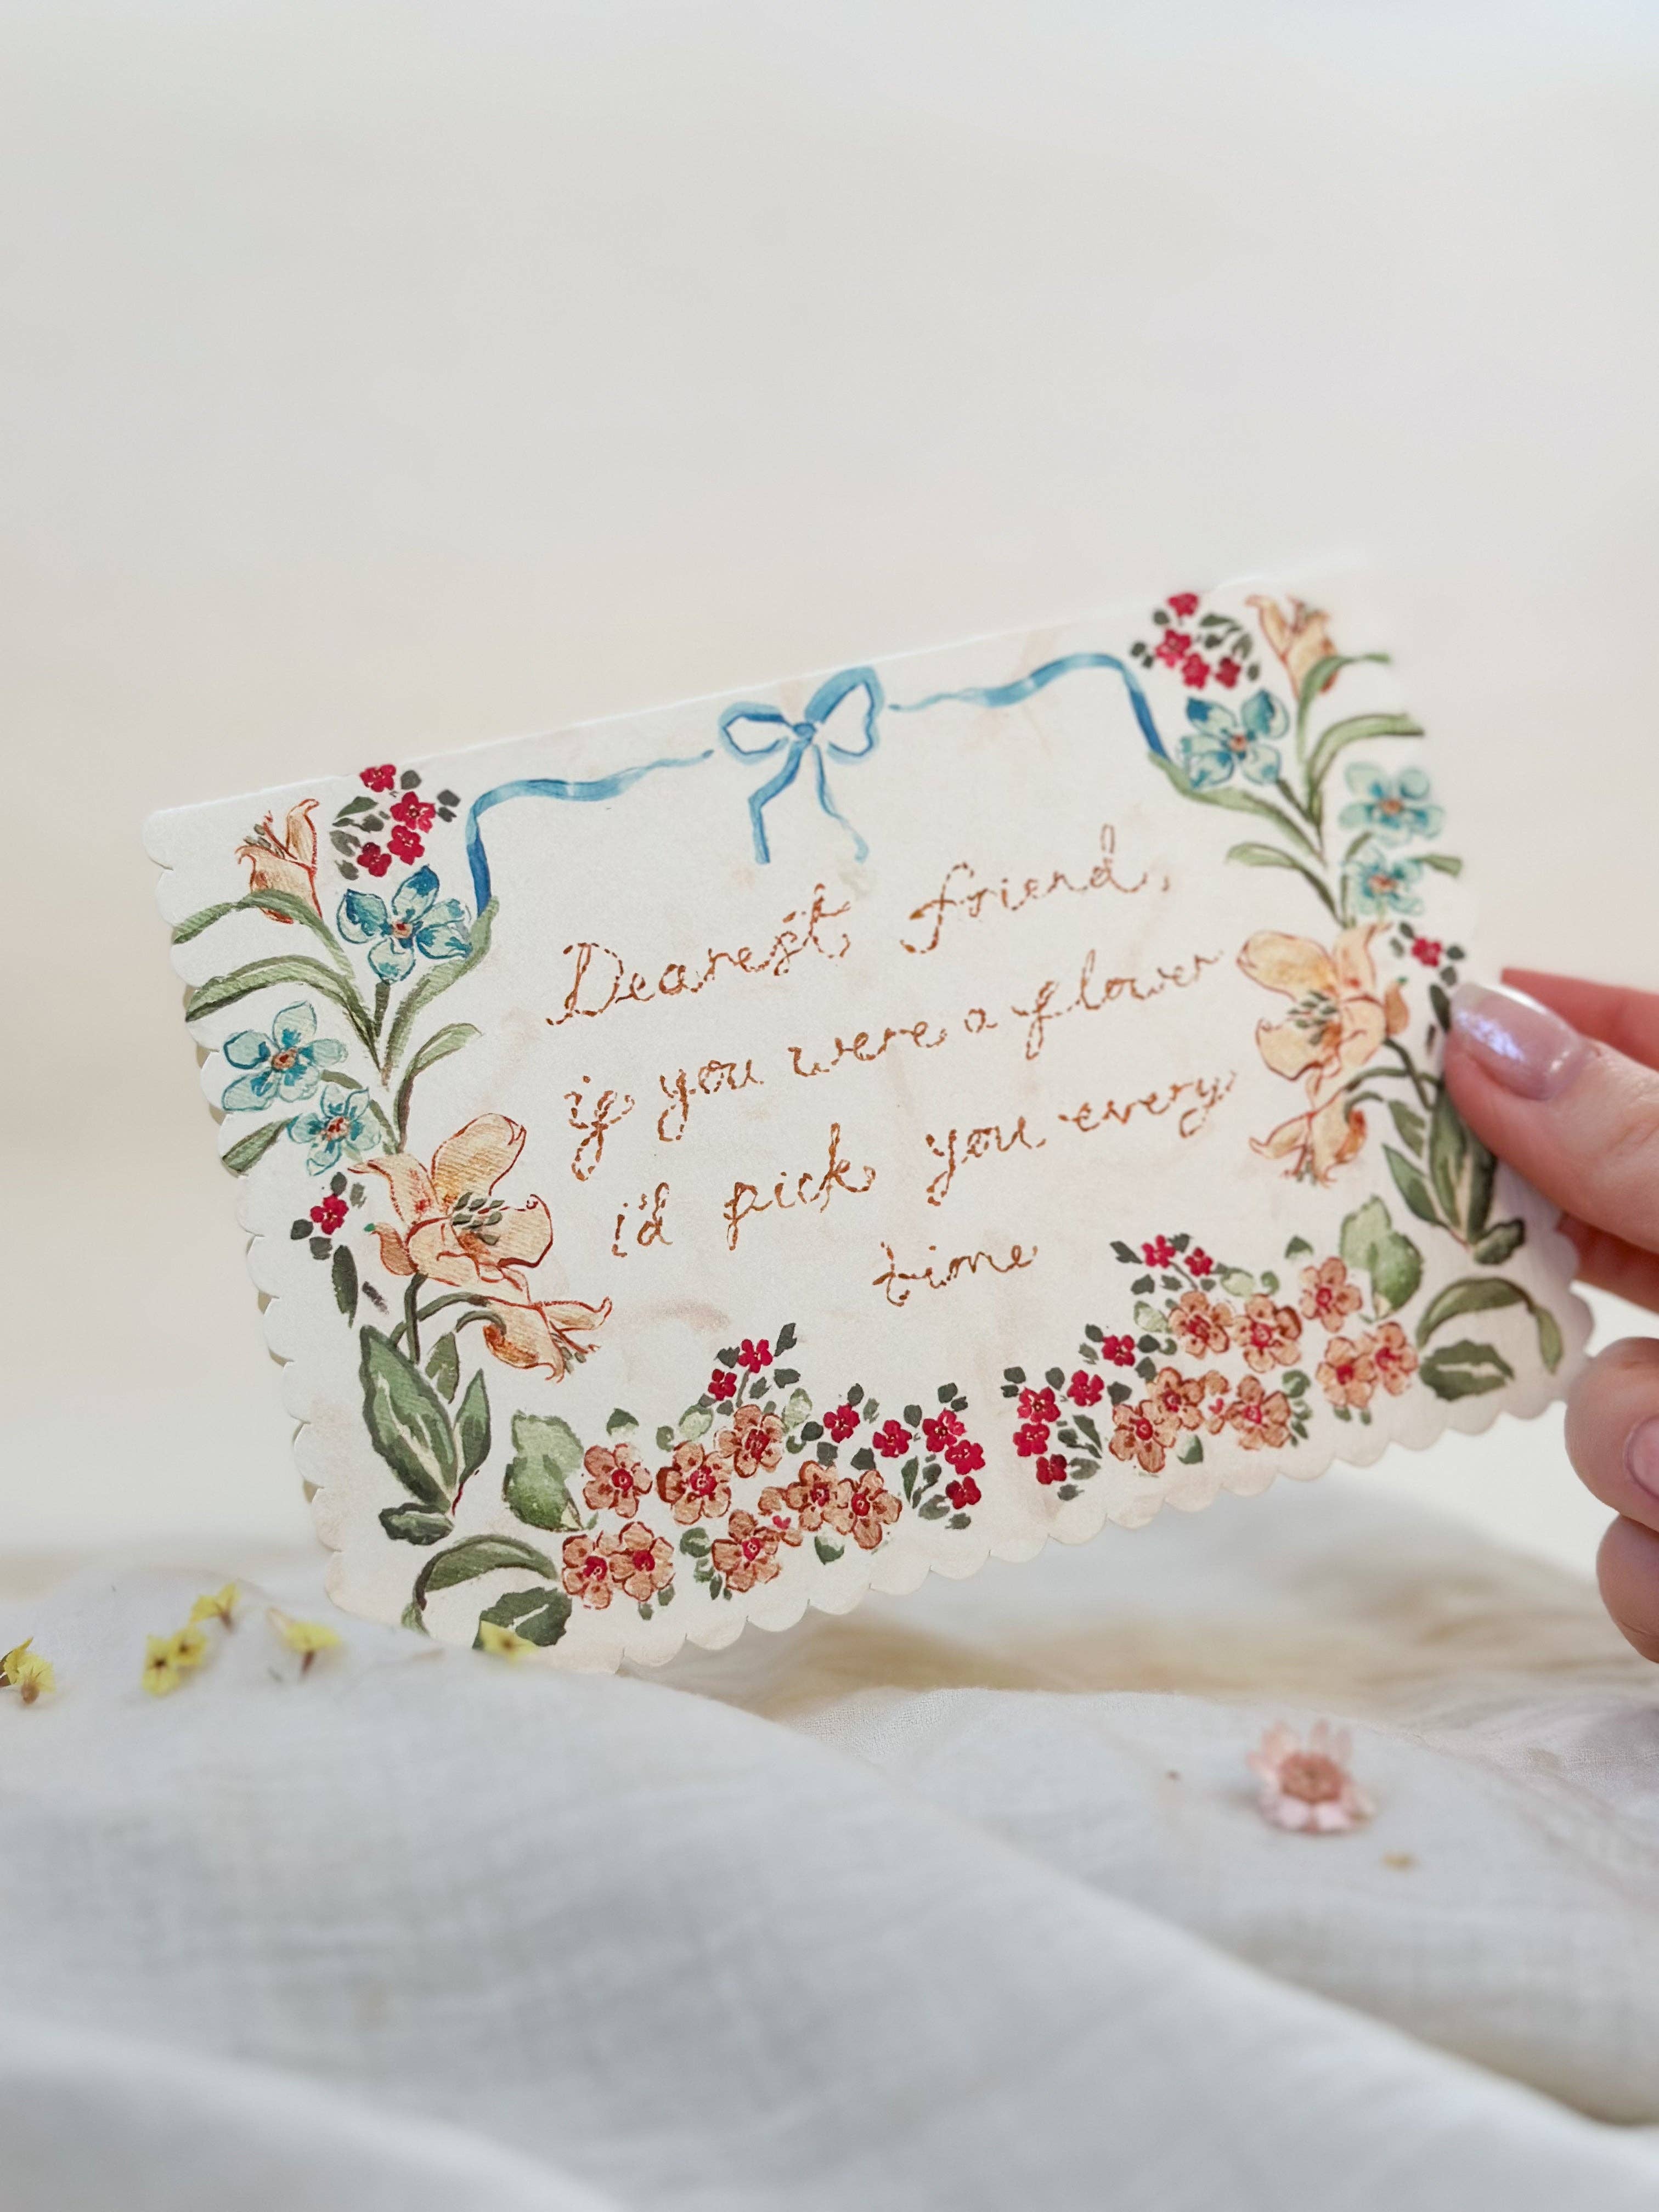 Dearest friend,
if you were a flower
i'd pick you every
time